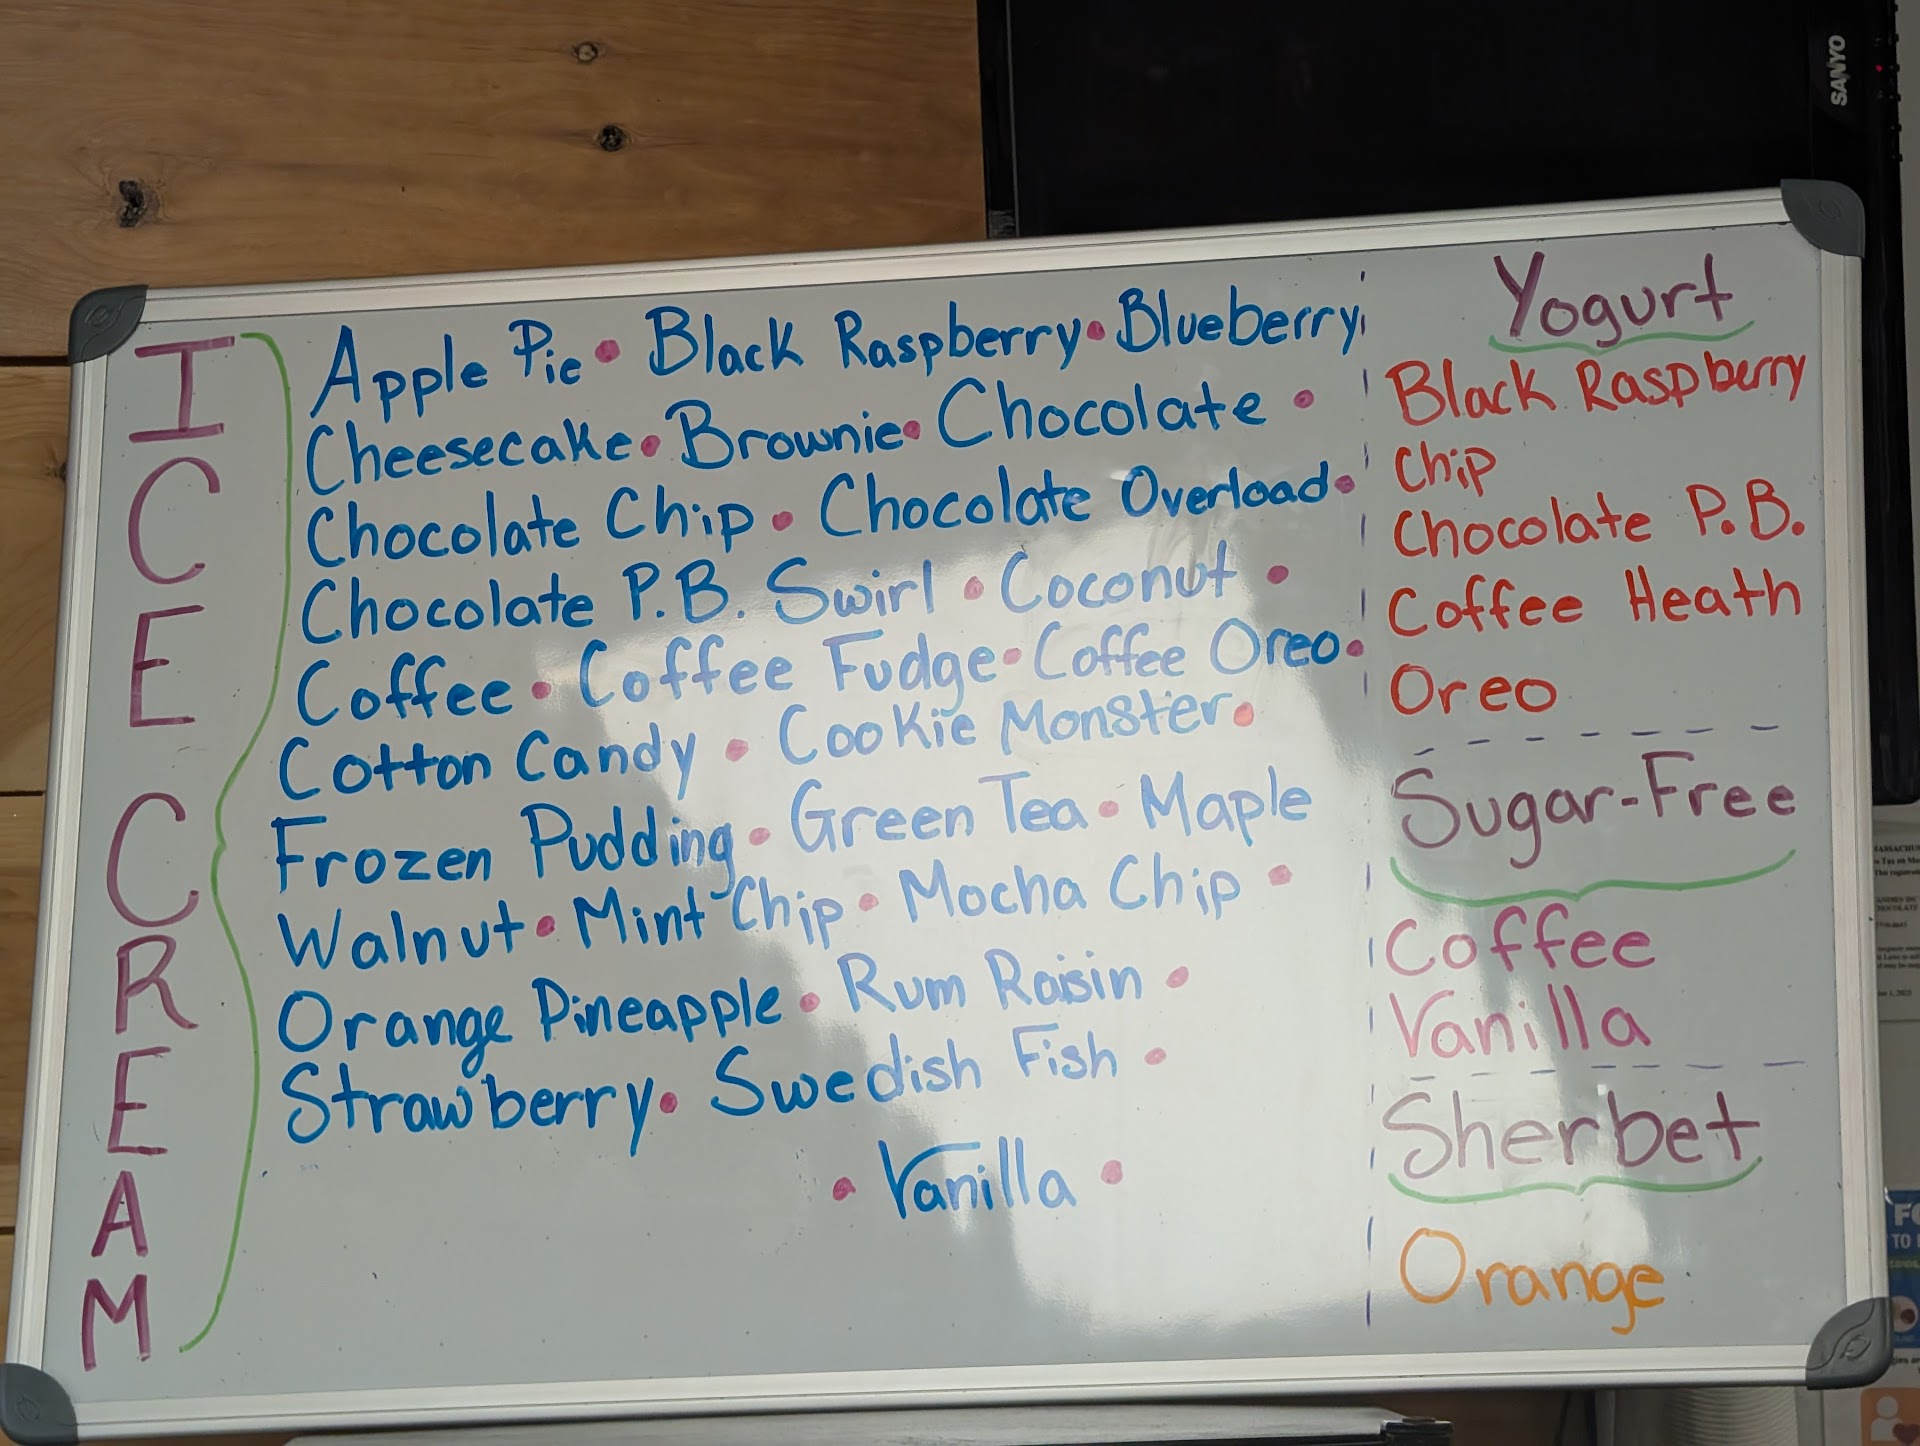 SANYO
ICE CREAM
Apple Pie • Black Raspberry • Blueberry
Cheesecake • Brownie • Chocolate •
Chocolate Chip • Chocolate Overload •
Chocolate P.B. Swirl • Coconut •
Coffee • Coffee Fudge • Coffee Oreo •
Cotton Candy • Cookie Monster •
Frozen Pudding • Green Tea • Maple
Walnut • Mint Chip • Mocha Chip •
Orange Pineapple • Rum Raisin •
Strawberry • Swedish Fish •
• Vanilla •
Yogurt
Black Raspberry
Chip
Chocolate P.B.
Coffee Heath
Oreo
Sugar-Free
Coffee
Vanilla
Sherbet
Orange